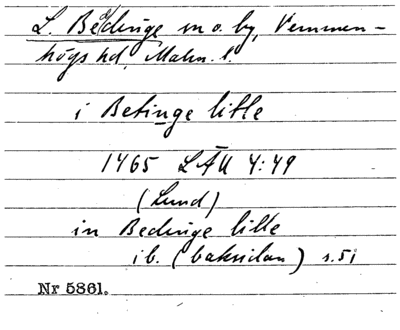 L. Beddinge sn o. by, Vemmen-
högs hd, Malm. l.
i Betinge litle
1465 LÄU 4:49
(Lund)
in Bedinge litle
ib. (baksidan) s. 51
Nr 5361.